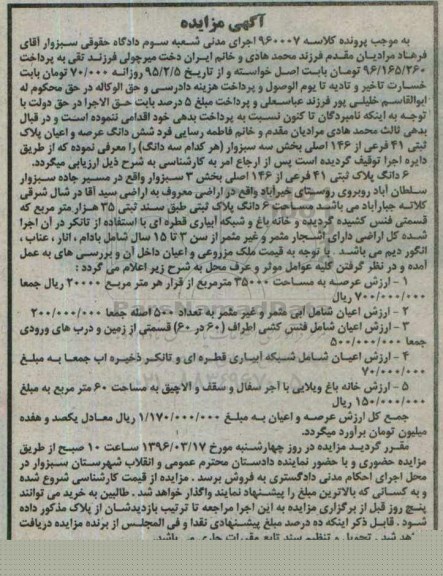 آگهی مزایده
به موجب پرونده کلاسه ۹۶۰۰۰۷ اجرای مدنی شعبه سوم دادگاه حقوقی سبزوار آقای
فرهاد مرادیان مقدم فرزند محمد هادی و خانم ایران دخت میرچولی فرزند تقی به پرداخت
۹۶/۱۶۵/۲۶۰ تومان بابت اصل خواسته و از تاریخ ۹۵/۲/۵ روزانه ۷۰/۰۰۰ تومان بابت
خسارت تاخیر و تادیه تا یوم الوصول و پرداخت هزینه دادرسی و حق الوکاله در حق محکوم له
ابوالقاسم خلیلی پور فرزند عباسعلی و پرداخت مبلغ ۵ درصد بابت حق الاجرا در حق دولت با
توجه به اینکه نامبردگان تا کنون نسبت به پرداخت بدهی خود اقدامی ننموده است و در قبال
بدهی ثالث محمد هادی مرادیان مقدم و خانم فاطمه رسایی فرد شش دانگ عرصه و اعیان پلاک
ثبتی ۴۱ فرعی از ۱۴۶ اصلی بخش سه سبزوار (هر کدام سه دانگ) را معرفی نموده که از طریق
دایره اجرا توقیف گردیده است پس از ارجاع امر به کارشناسی به شرح ذیل ارزیابی میگردد.
۶ دانگ پلاک ثبتی ۴۱ فرعی از ۱۴۶ اصلی بخش ۳ سبزوار واقع در مسیر جاده سبزوار
سلطان آباد روبروی روستای خیرآباد واقع در اراضی معروف به اراضی سید آقا در شال شرقی
کلاته جبارآباد می باشد مساحت ۶ دانگ پلاک ثبتی طبق سند ثبتی ۳۵ هزار متر مربع که
قسمتی فنس کشیده گردیده و خانه باغ و شبکه آبیاری قطره ای با استفاده از تانکر در آن اجرا
شده کل اراضی دارای اشجار مثمر و غیر مثمر از سن ۳ تا ۱۵ سال شامل بادام ، انار ، عناب ،
انگور دیم می باشد . با توجه به قیمت ملک مزروعی و اعیان داخل آن و بررسی های به عمل
آمده و در نظر گرفتن کلیه عوامل موثر و عرف محل به شرح زیر اعلام می گردد :
۱ - ارزش عرصه به مساحت ۳۵۰۰۰ مترمربع از قرار هر متر مربع ۲۰۰۰۰ ریال جمعا
۷۰۰/۰۰۰/۰۰۰ ریال
۲ - ارزش اعیان شامل آبی مثمر و غیر مثمر به تعداد ۵۰۰ اصله جمعا ۲۰۰/۰۰۰/۰۰۰
۳ - ارزش اعیان شامل فنس کشی اطراف (۶۰ در ۶۰) قسمتی از زمین و درب های ورودی
جمعا ۵۰۰/۰۰۰/۰۰۰
۴ - ارزش اعیان شامل شبکه آبیاری قطره ای و تانکر ذخیره اب جمعا به مبلغ
۷۰/۰۰۰/۰۰۰
۵ - ارزش خانه باغ ویلایی با آجر سفال و سقف و آلاچیق به مساحت ۶۰ متر مربع به مبلغ
۱۵۰/۰۰۰/۰۰۰ ریال
جمع کل ارزش عرصه و اعیان به مبلغ ۱/۱۷۰/۰۰۰/۰۰۰ ریال معادل یکصد و هفده
میلیون تومان برآورد میگردد.
مقرر گردید مزایده در روز چهارشنبه مورخ ۱۳۹۶/۰۳/۱۷ ساعت ۱۰ صبح از طریق
مزایده حضوری و با حضور نماینده دادستان محترم عمومی و انقلاب شهرستان سبزوار در
محل اجرای احکام مدنی دادگستری به فروش برسد . مزایده از قیمت کارشناسی شروع شده
و به کسانی که بالاترین مبلغ را پیشنهاد نمایند واگذار خواهد شد . طالبین به خرید می توانند
پنج روز قبل از برگزاری مزایده به این اجرا مراجعه تا ترتیب بازدیدشان از پلاک مذکور داده
شود . قابل ذکر اینکه ده درصد مبلغ پیشنهادی نقدا و فی المجلس از برنده مزایده دریافت
هد شد . تحویل و تنظیم سند تابع مقررات جاری می باشد.